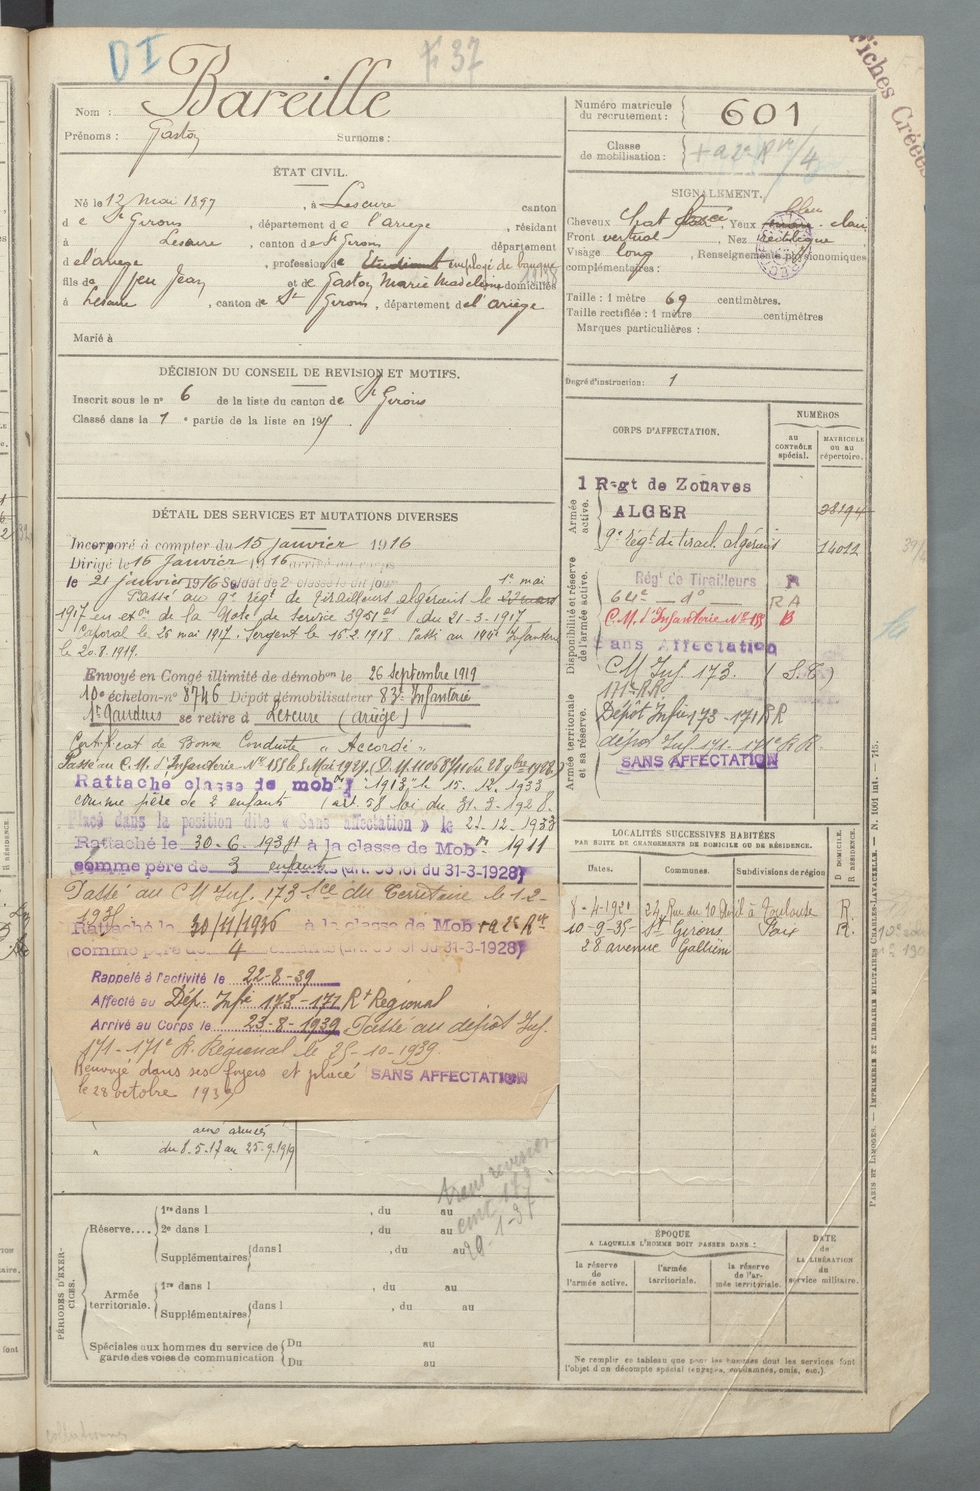 D I
F 37
Fiches Créées
Nom : Bareille
Prénoms : Gaston Surnoms :
ÉTAT CIVIL.
Né le 12 Mai 1897, à Lescure canton
de St Girons, département de l'ariège, résidant
à Lescure, canton de St Girons département
d el'ariège, profession de étudiant employé de banque
fils de feu Jean et de Gaston Marie Madeleine domiciliés
à Lescure, canton de St Girons, département del'ariège
Marié à
DÉCISION DU CONSEIL DE REVISION ET MOTIFS.
Inscrit sous le n° 6 de la liste du canton de St Girons
Classé dans la 1e partie de la liste en 191
DÉTAIL DES SERVICES ET MUTATIONS DIVERSES
Incorporé à compter du 15 janvier 1916
Dirigé le 16 janvier 1916 arrivé au corps
le 21 janvier 1916 Soldat de 2e classe le dit jour
1er mai
Passé au 9e régt de Tirailleurs algériens le
1917 en exon de la Note de Service 3951 du 21-3-1917
Caporal le 25 mai 1917. Sergent le 15.2.1918. Passé au Infanterie
le 20.8.1919.
Envoyé en Congé illimité de démobon le 26 Septembre 1919
10e échelon-n° 8746 Dépôt démobilisateur 83e Infanterie
St Gaudens se retire à Lescure (ariège)
Certificat de Bonne Conduite "Accordé"
Passé au C.M. d'Infanterie N° 155 le 5 Mai 1929.
Rattaché classe de mob. 1913 le 15.12.1933
comme père de 2 enfants (art. 58 loi du 31-3-1928.
Placé dans la position dite « Sans affectation » le 21-12-1933
Rattaché le 30-6-193 à la classe de Mobon 1911
comme père de 3 enfants (art. 58 loi du 31-3-1928)
Passé au CM Inf. 173 Sce du Territoire le 1-2-
Rattaché le 30/11/1936 à la classe de Mob
comme père de 4 enfants (art. 58 loi du 31-3-1928)
Rappelé à l'activité le 22-8-39
Affecté au Dép. Infie 173-171 Rt Régional
Arrivé au Corps le 23-8-1939 Passé au dépôt Inf.
171-171e R. Régional le 25-10-1939.
Renvoyé dans ses foyers et placé SANS AFFECTATION
le 28 octobre 1939
aux armées
du 8.5.17 au 25.9.1919
1-37
PÉRIODES D'EXERCICES.
Réserve....
1re dans l , du au
2e dans l , du au
Supplémentaires dans l , du au
Armée territoriale.
1re dans l , du au
Supplémentaires dans l , du au
Spéciales aux hommes du service de garde des voies de communication
Du au
Du au
Numéro matricule du recrutement : 601
Classe de mobilisation :
SIGNALEMENT.
Cheveux chat foncé, Yeux bleu clair
Front vertical, Nez rectiligne
Visage long, Renseignements physionomiques
complémentaires :
Taille : 1 mètre 69 centimètres.
Taille rectifiée : 1 mètre centimètres
Marques particulières :
Degré d'instruction : 1
CORPS D'AFFECTATION.
NUMÉROS
au CONTRÔLE spécial.
MATRICULE OU AU répertoire.
Armée active.
1 Regt de Zouaves
ALGER 28194
9e régt de tirail. algériens 14012
Disponibilité et réserve de l'armée active.
Régt de Tirailleurs R
64e d° R A
C.M. d'Infanterie N° 155 B
Sans Affectation
CM Inf. 173.
171e RR
Armée territoriale et sa réserve.
Dépôt Infie 173-171 RR
dépôt Inf. 171-171e R.R.
SANS AFFECTATION
LOCALITÉS SUCCESSIVES HABITÉES
PAR SUITE DE CHANGEMENTS DE DOMICILE OU DE RÉSIDENCE.
Dates. Communes. Subdivisions de région
D DOMICILE. R RÉSIDENCE.
8-4-1921 24, Rue du 10 Avril à Toulouse R.
10-9-35- St Girons Foix R.
28 avenue Galliéni
ÉPOQUE
A LAQUELLE L'HOMME DOIT PASSER DANS :
la réserve de l'armée active.
l'armée territoriale.
la réserve de l'armée territoriale.
DATE de LA LIBÉRATION du service militaire.
Ne remplir ce tableau que pour les hommes dont les services font
l'objet d'un décompte spécial (engagés, condamnés, omis, etc.).
PARIS ET LIMOGES. — IMPRIMERIE ET LIBRAIRIE MILITAIRES CHARLES-LAVAUZELLE. — N. 1001 int. — 715.